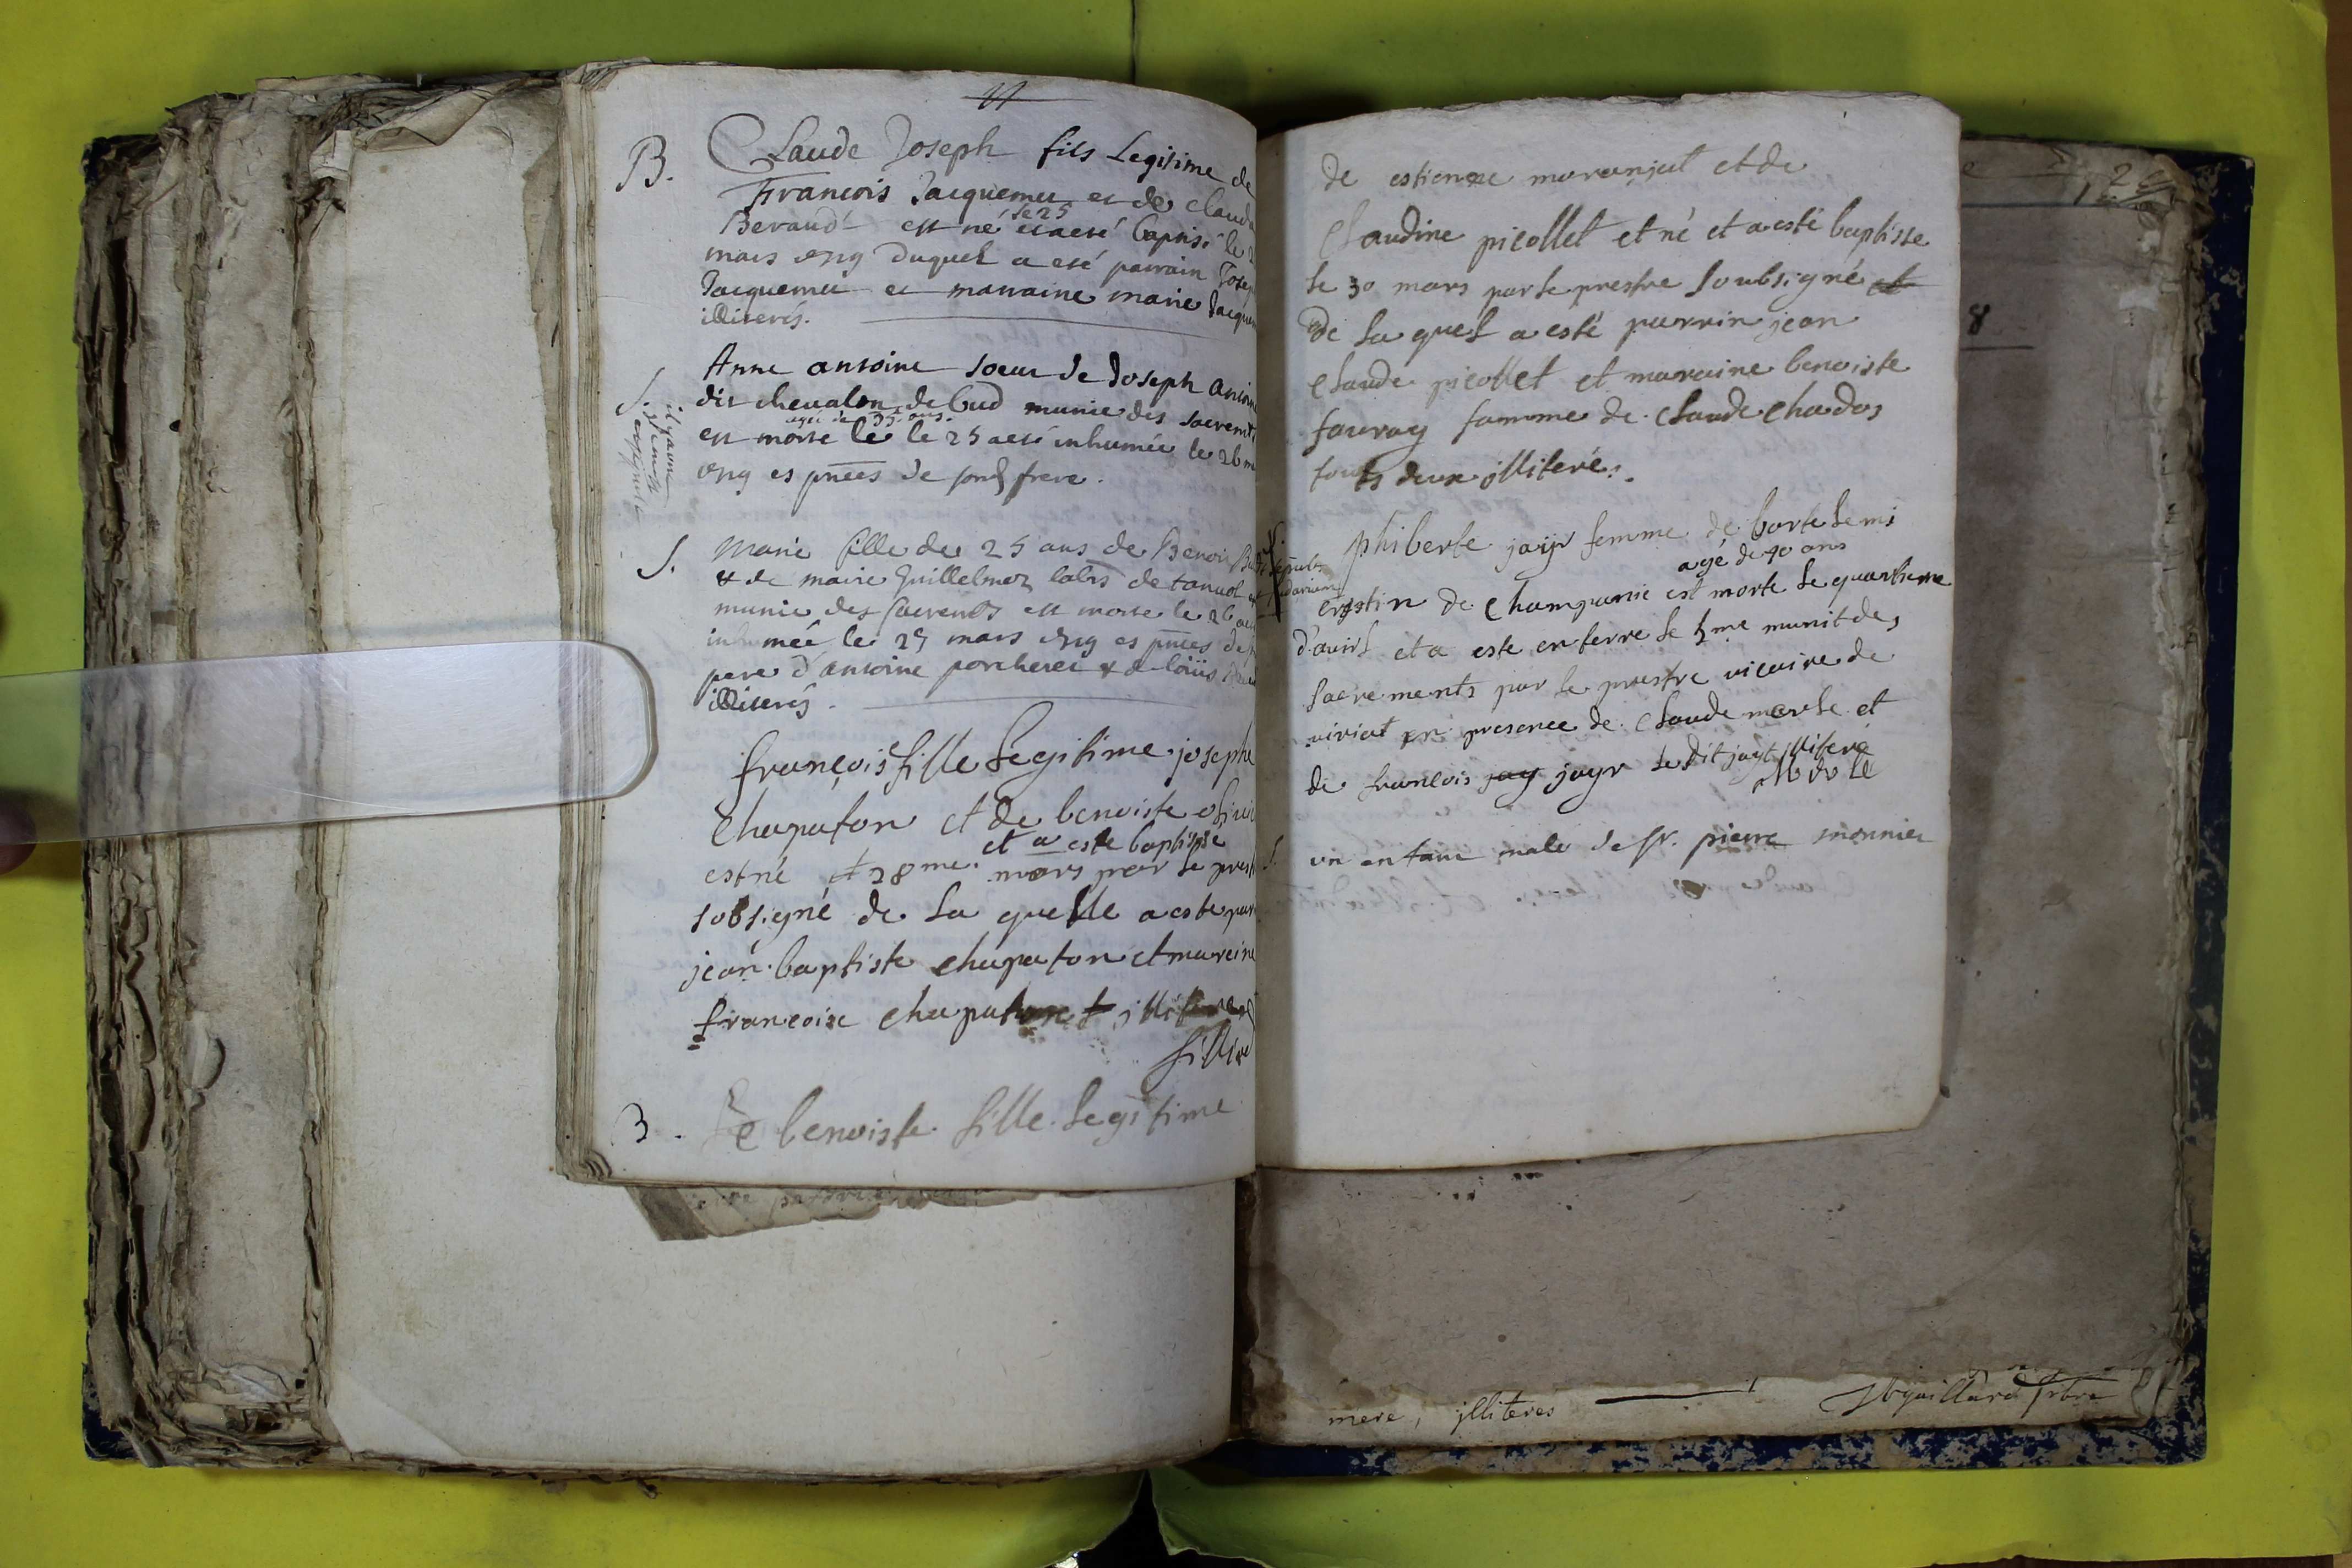 B. Claude Joseph fils Legitime de
Francois Jacquemet et de Claud
Beraud est né le 25 et a eté baptisé le 2
mars 1719 duquel a eté parrain Josep
Jacquemet et marraine marie Jacquem
illiterés.
S. Anne antoine soeur de Joseph Antoine
dit chevalon de Cud munie des sacremts
agée de 35 ans.
est morte le le 25 a eté inhumée le 26 m
1719 es pnces de sond frere.
S. Marie fille de 25 ans de Benoit
& de marie Guillelmoz labrs de tanuol
munie des sacremts est morte le 26 a
inhumée le 27 mars 1719 es pnces de
pere d'antoine porcheret & de loüis
illiterés.
françoise fille Legitime josephe
Chapaton et de benoiste
et a este baptisse
est né 28me mars par le prest
sobsigné de la quelle a este par
jean baptiste chapaton et mareine
francoise chapaton illiteres
B. benoiste fille Legitime
de estienne moranjat et de
Claudine picollet et né et a esté baptisse
le 30 mars par le prestre soubsigné et
de la quel a esté parrin jean
Claude picollet et maraine benoiste
fauray famme de Claude Chados
touts deux illiteré.
S. phiberte jayr femme de bartelemi
agé de 40 ans
de Champanie est morte le quatrieme
d'avirl et a este enterre le 5me munit des
sacrements par le prestre vicaire de
viriat en presence de Claude marle et
de francois jay jayr le dit jayr illitere
Morle
S. un enfant male de Sr. pierre monnier
2
8
mere, illiteres